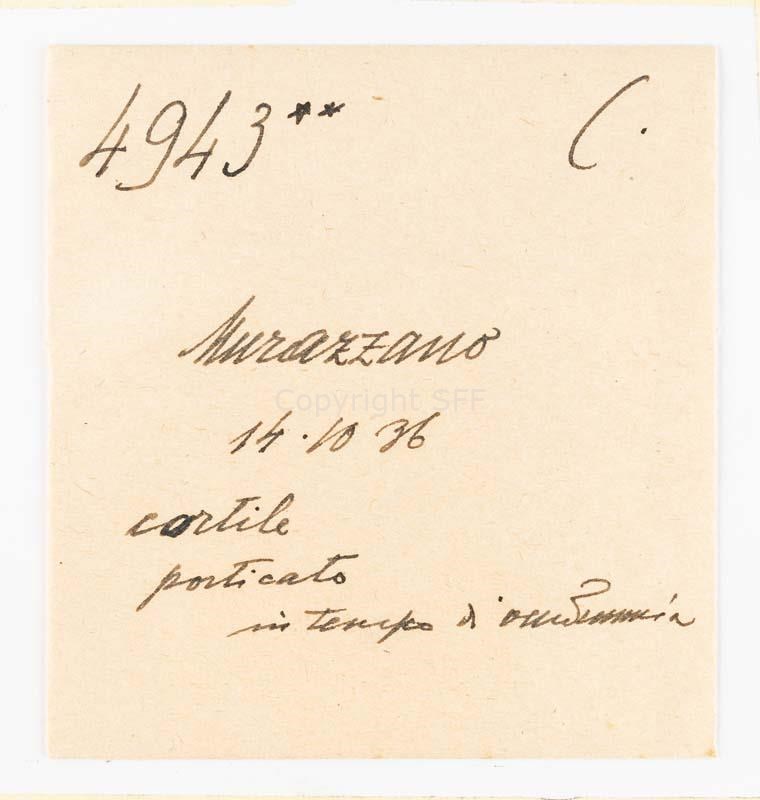 4943** C.
Murazzano
Copyright SFF
14.10 36
cortile
porticato
in tempo di vendemmia